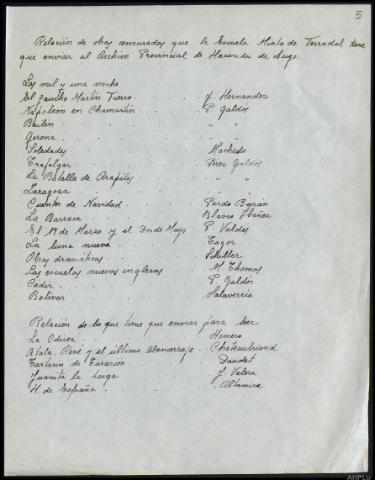 5
Relación de obras censuradas que la Escuela Mixta de Ferradal tiene
que enviar al Archivo Provincial de Hacienda de Lugo.
Las mil y una noche
El gaucho Martín Fierro . . . J. Hernandez
Napoleon en Chamartín . . . P. Galdós
Bailén . . . " "
Gerona . . . " "
Soledades . . . Machado
Trafalgar . . . Perez Galdós
La Batalla de Arapiles . . . " "
Zaragoza . . . " "
Cuentos de Navidad . . . Pardo Bazán
La Barraca . . . Blasco Ibañez
El 19 de Marzo y el Dos de Mayo . P. Valdes
La luna nueva . . . Tagor
Obras dramáticas . . . Schiller
Las escuelas nuevas inglesas . . . M. Thomas
Cádiz . . . P. Galdos
Bolívar . . . Salaverria
Relacion de lo que tiene que enviar para leer
La Odisea . . . Homero
Atala, René y el último Abencerraje . Chateaubriand
Tartarin de Tarascón . . . Daudet
Juanita la Larga . . . J. Valera
H. de España . . . Altamira
AHPLu